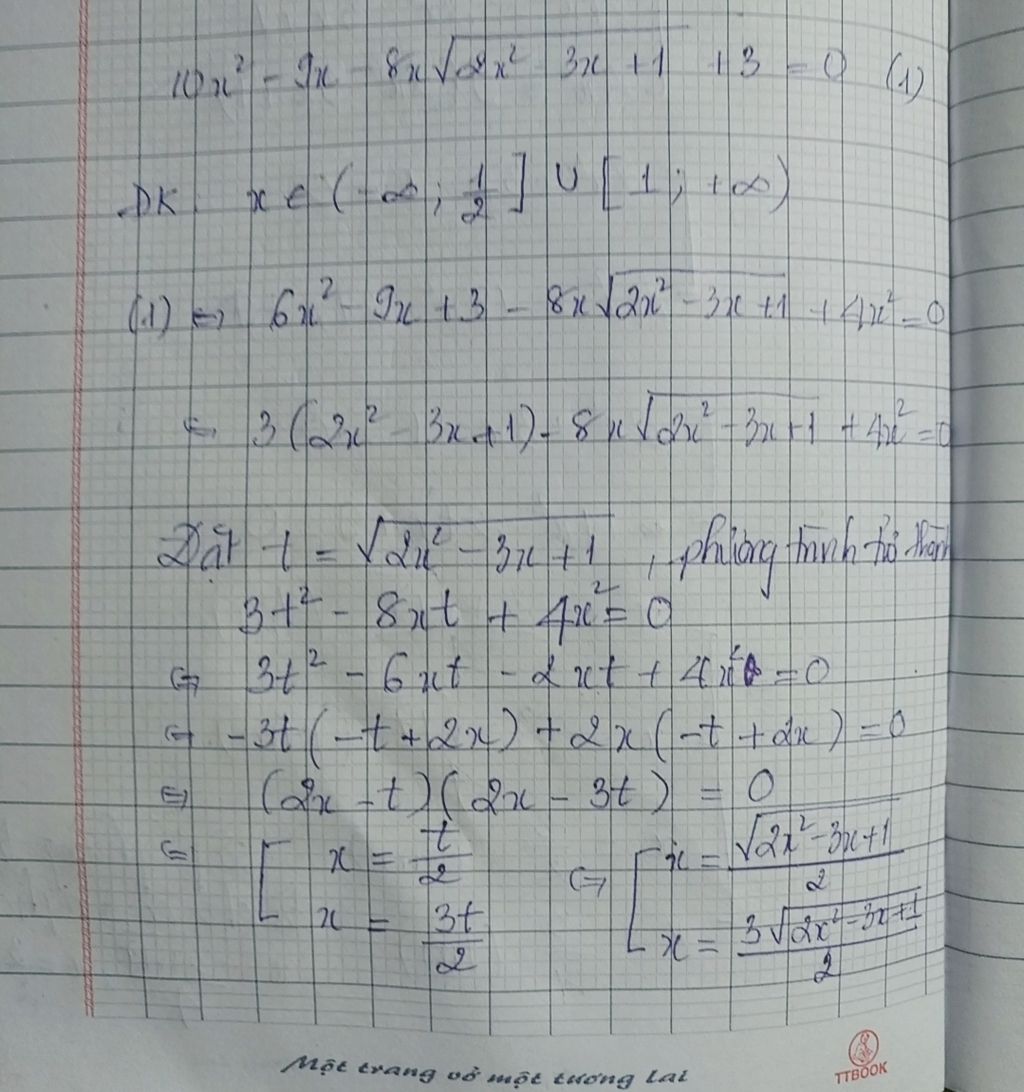 10x² - 9x - 8x√(2x² - 3x + 1) + 3 = 0 (1)
ĐK: x ∈ (-∞; 1/2] ∪ [1; +∞)
(1) ⇔ 6x² - 9x + 3 - 8x√(2x² - 3x + 1) + 4x² = 0
⇔ 3(2x² - 3x + 1) - 8x√(2x² - 3x + 1) + 4x² = 0
Đặt t = √(2x² - 3x + 1), phương trình trở thành
3t² - 8xt + 4x² = 0
⇔ 3t² - 6xt - 2xt + 4x² = 0
⇔ -3t(-t + 2x) + 2x(-t + 2x) = 0
⇔ (2x - t)(2x - 3t) = 0
⇔ [ x = t/2 ⇔ [ x = √(2x² - 3x + 1)/2
x = 3t/2 x = 3√(2x² - 3x + 1)/2
Một trang vở một tương lai
TTBOOK